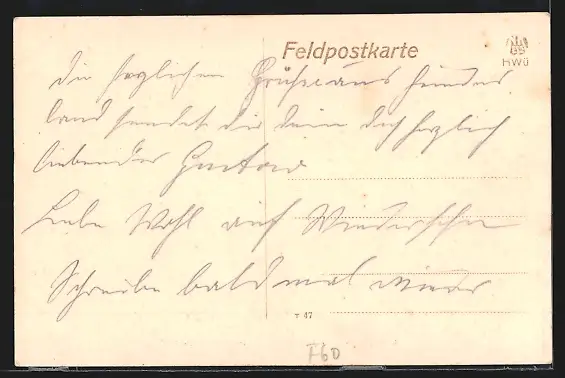 Feldpostkarte
HWü
Die herzlichen Grüße aus Feindes
land sendet dir dein dich herzlich
liebender Gustav
Lebe Wohl auf Wiedersehn
Schreibe bald mal wieder
T 47
F60